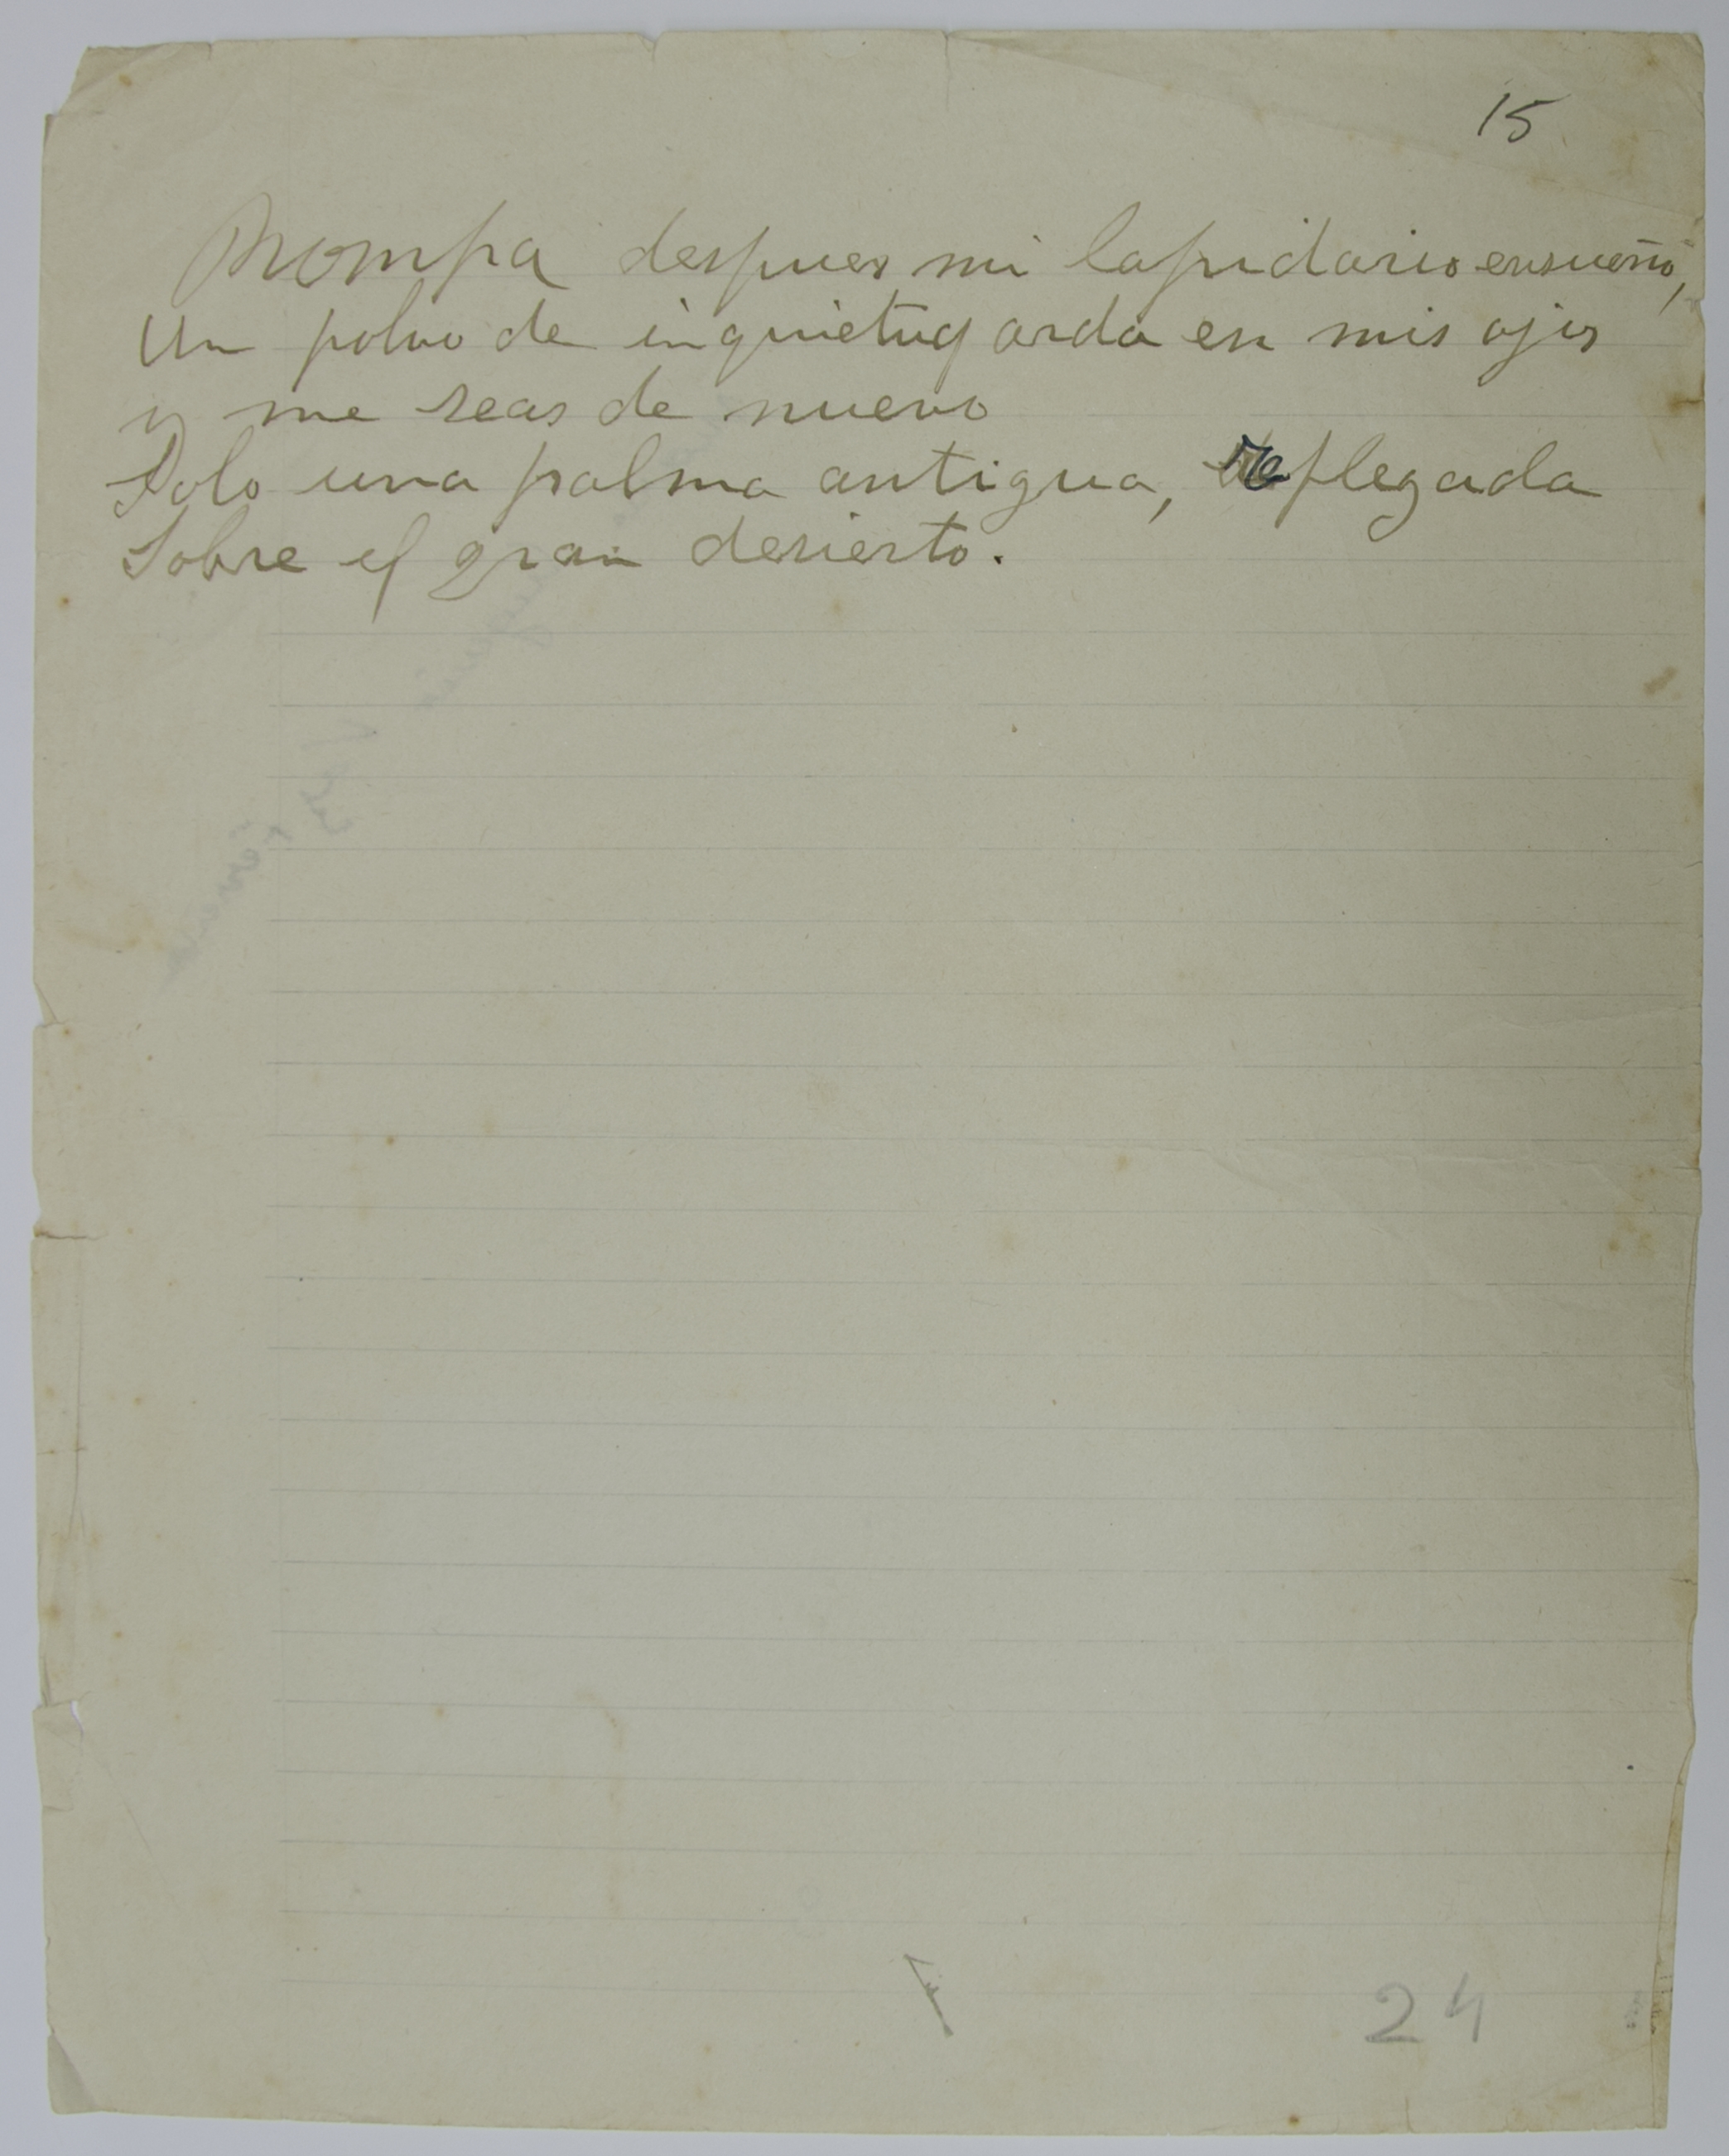 15
Rompa despues mi lapidario ensueño,
Un polvo de inquietud arda en mis ojos
y me seas de nuevo
Solo una palma antigua, replegada
Sobre el gran desierto.
24